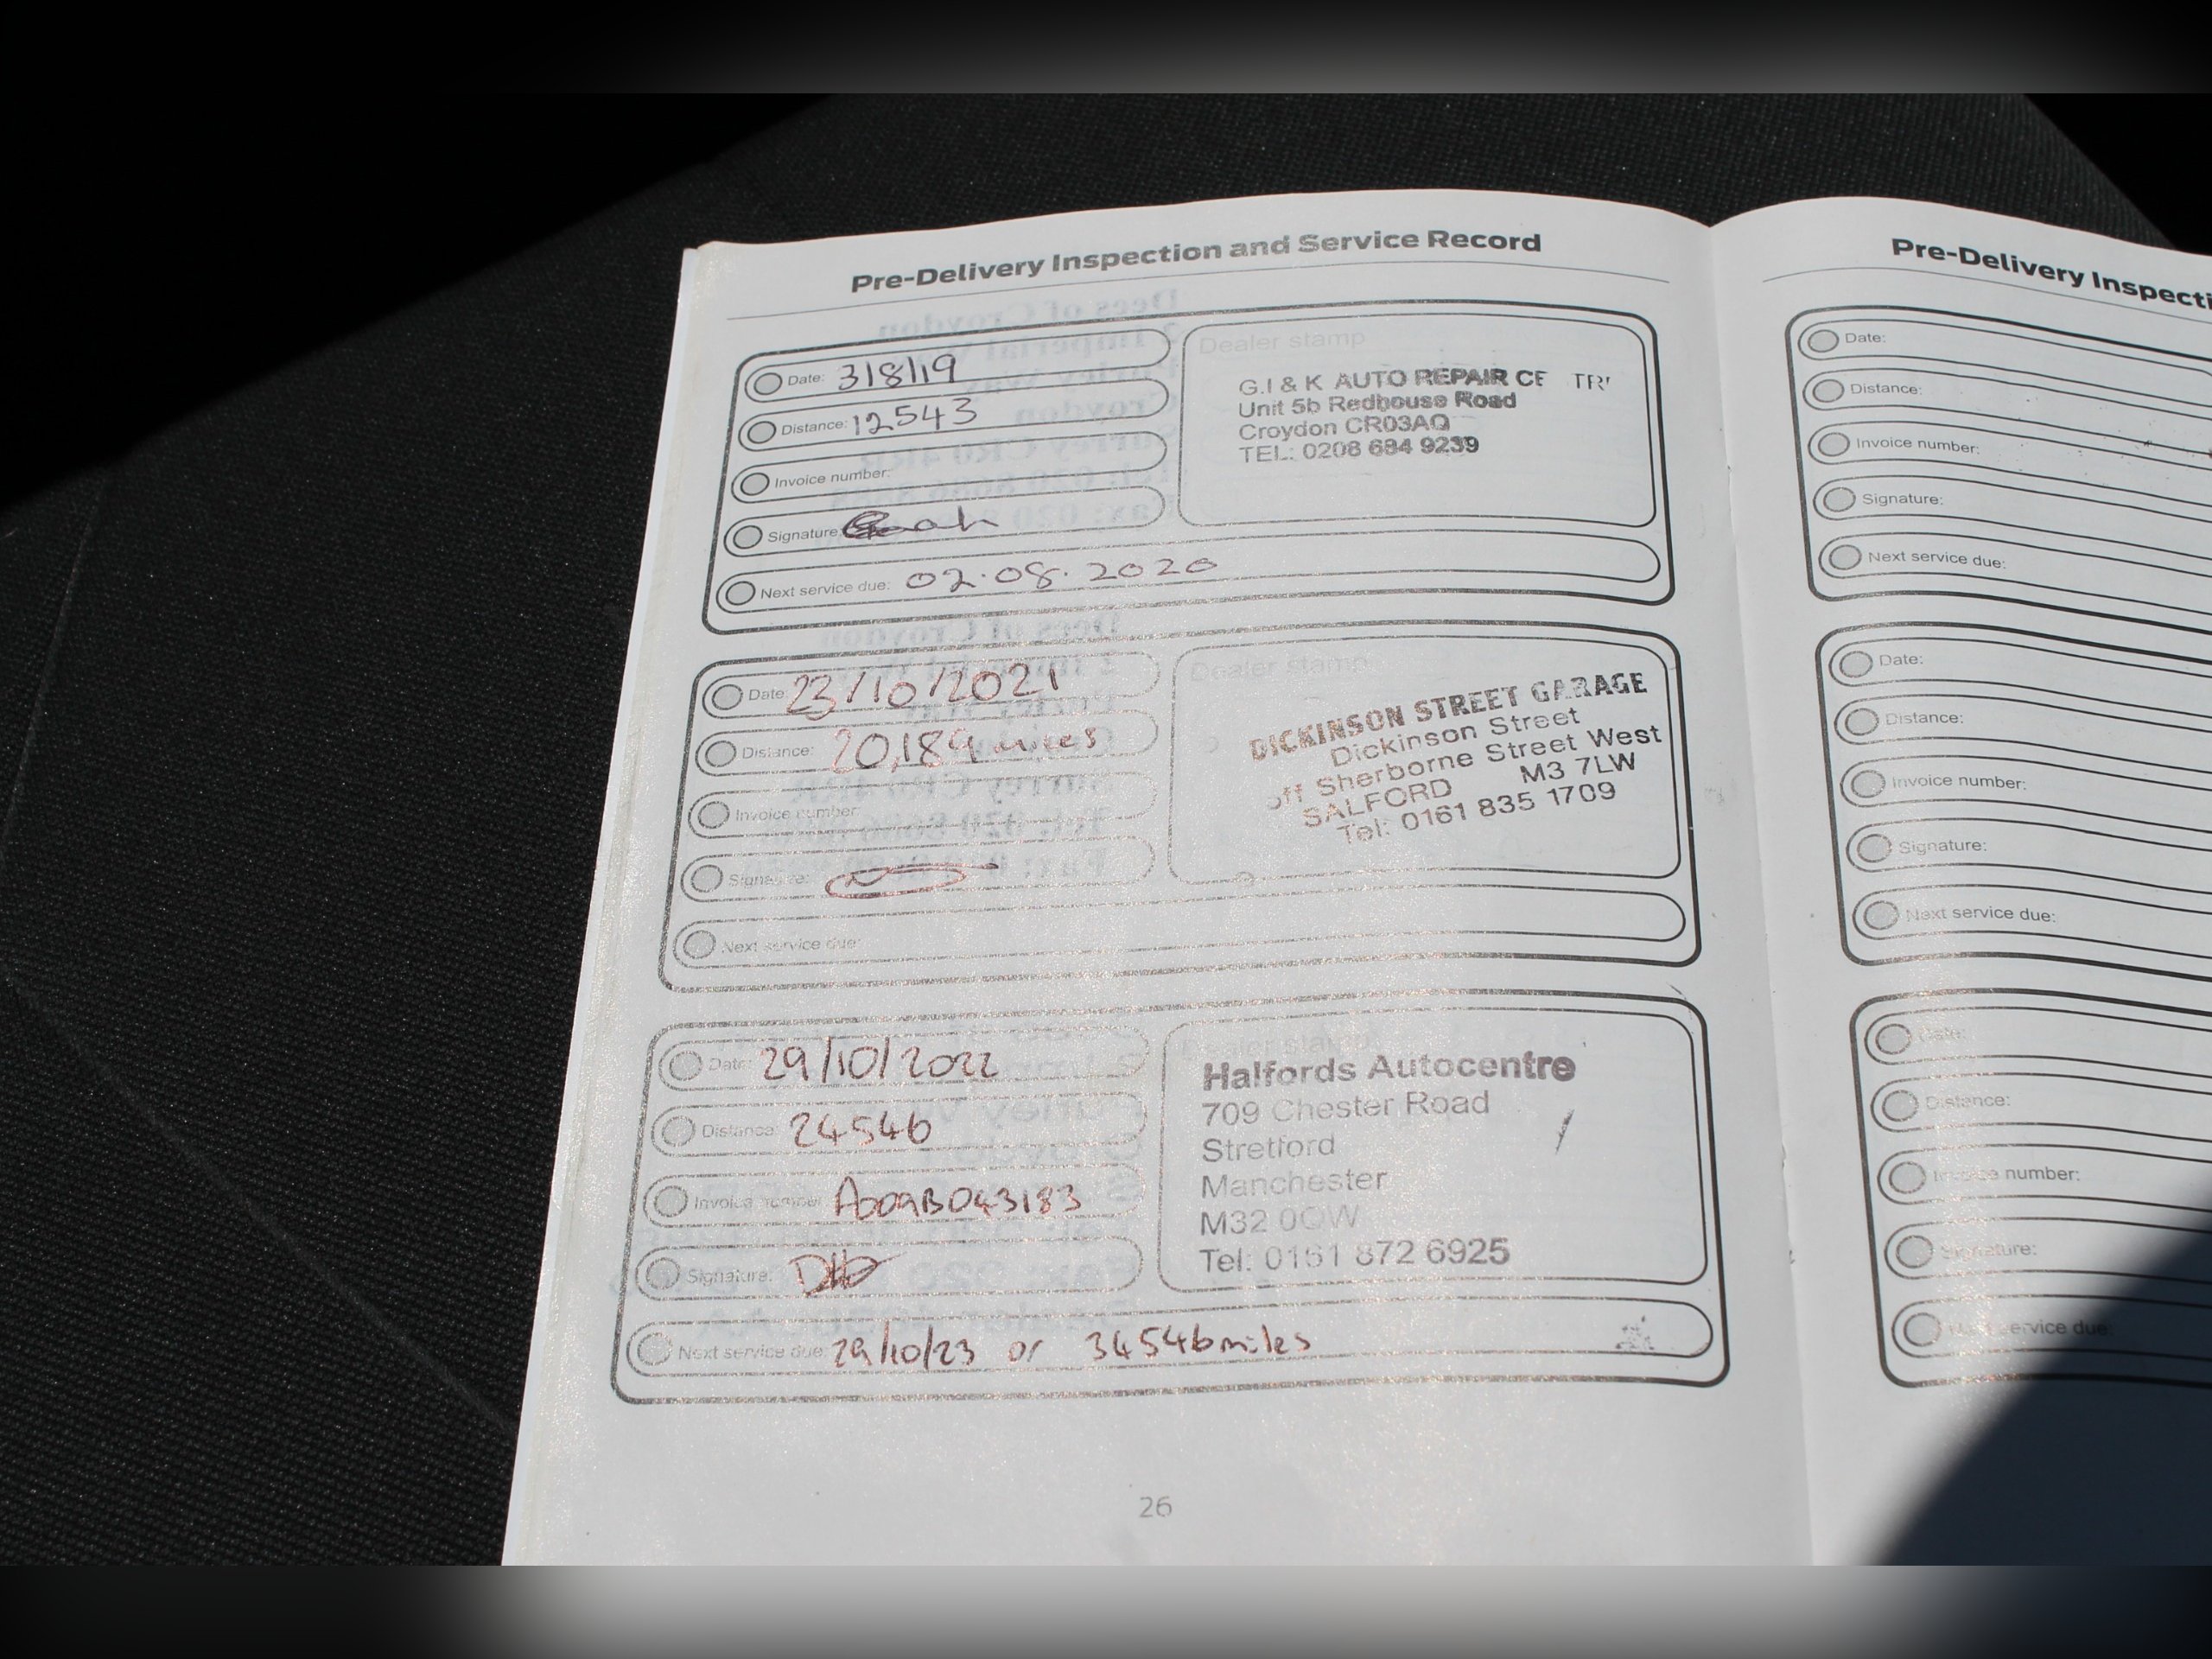 Pre-Delivery Inspection and Service Record
Date: 3/8/19
Distance: 12543
Invoice number:
Signature:
Next service due: 02.08.2020
Dealer stamp
G.I & K AUTO REPAIR
Unit 5b Redhouse Road
Croydon CR03AQ
TEL: 0208 684 9239
Date: 23/10/2021
Distance: 20,184 miles
Invoice number
Signature:
Next service due:
Dealer stamp
DICKINSON STREET GARAGE
Dickinson Street
off Sherborne Street West
SALFORD M3 7LW
Tel: 0161 835 1709
Date: 29/10/2022
Distance: 24546
Invoice number A009B043183
Signature:
Next service due: 29/10/23 or 34546 miles
Dealer stamp
Halfords Autocentre
709 Chester Road
Stretford
Manchester
M32 0QW
Tel: 0161 872 6925
26
Pre-Delivery Inspecti
Date:
Distance:
Invoice number:
Signature:
Next service due:
Date:
Distance:
Invoice number:
Signature:
Next service due:
Date:
Distance:
Invoice number:
Signature:
Next service due: